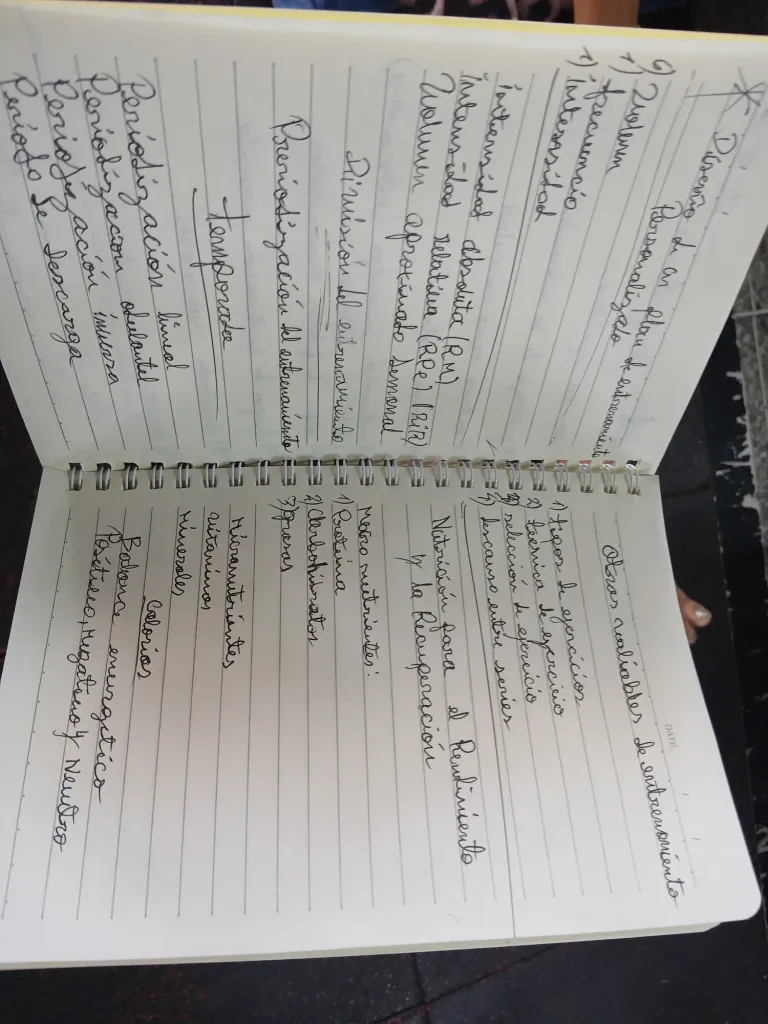 * Diseño de un plan de entrenamiento
Personalizado
6)
1) Volumen
frecuencia
1) intensidad
intensidad absoluta (RM)
intensidad relativa (RPE) (RIR)
Volumen aproximado semanal
División del entrenamiento
Periodización del entrenamiento
temporada
Periodización lineal
Periodización odulantel
Periodización inversa
Periodo de descarga
DATE:
Otras valiables de entrenamiento
1) tipos de ejercicios
2) técnica de ejercicio
3) selección de ejercicio
4) descanso entre series
Nutrición para el Rendimiento
y la Recuperación
Macro nutrientes:
1) Proteína
2) Carbohidratos
3) grasas
Micronutrientes
vitaminas
minerales
Calorías
Balance energético
Positivo, Negativo y Neutro